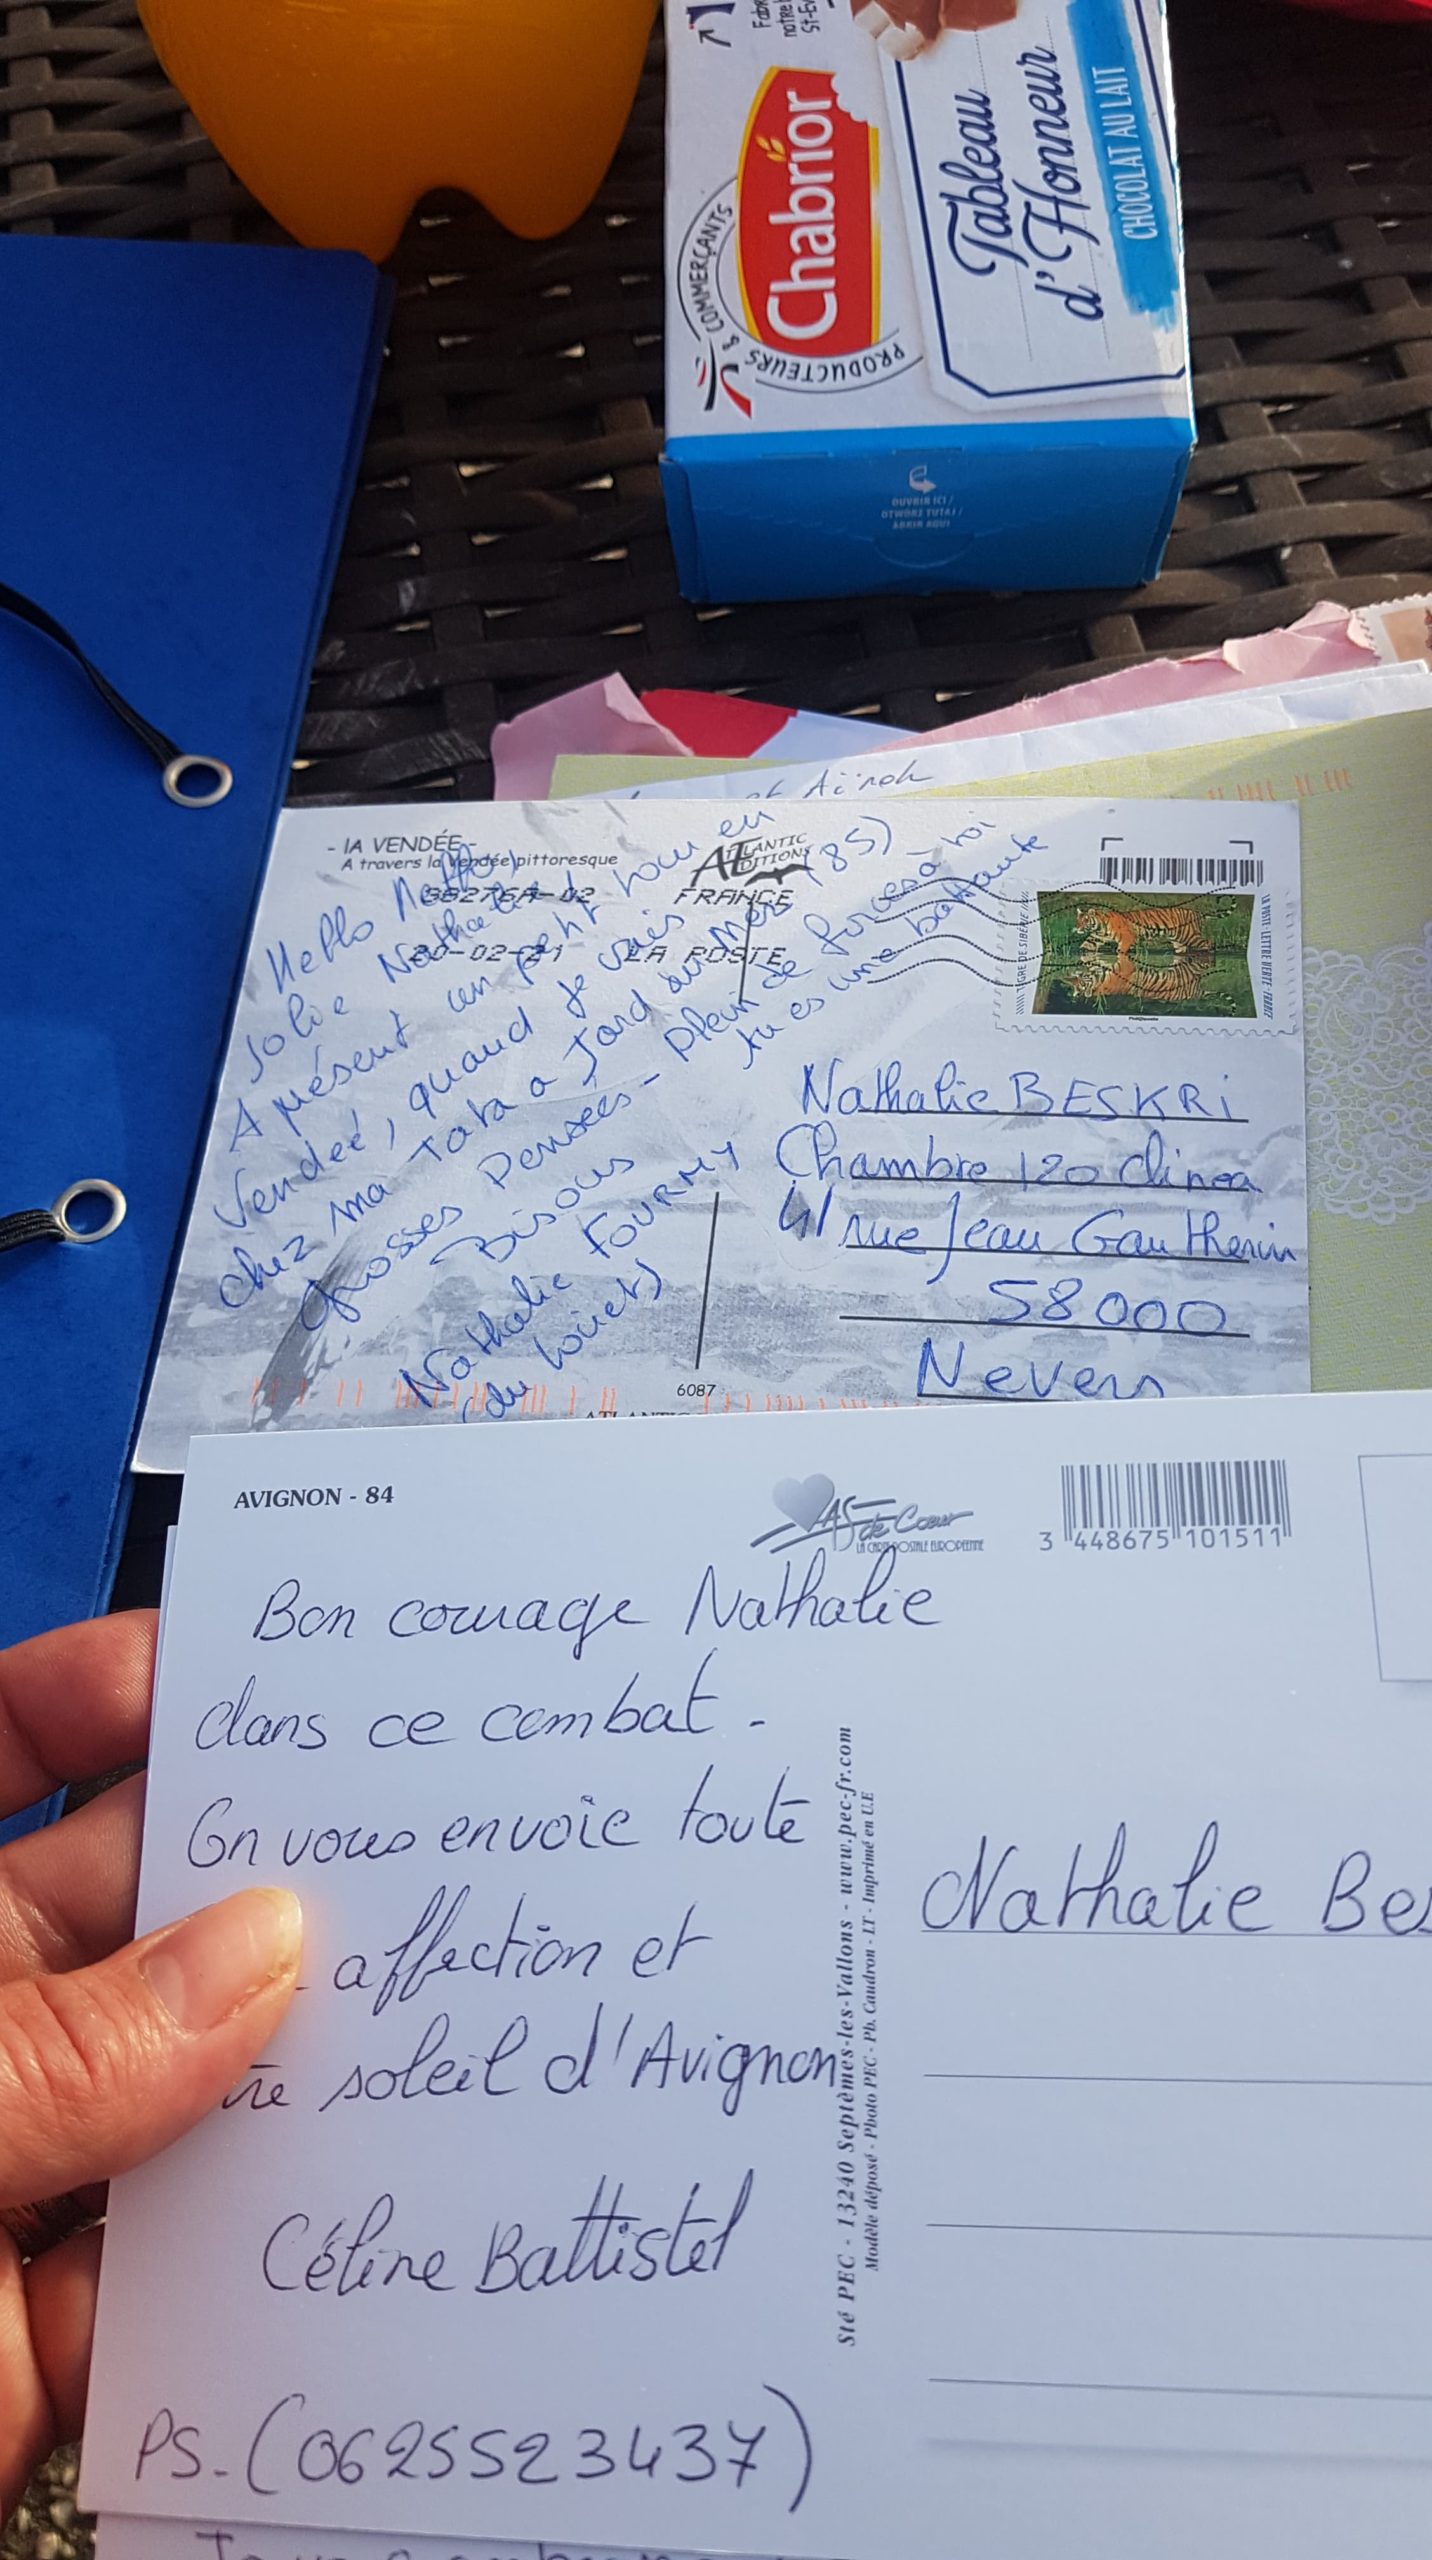 Chabrior
PRODUCTEURS & COMMERÇANTS
Tableau
d'Honneur
CHOCOLAT AU LAIT
OUVRIR ICI /
OTWÓRZ TUTAJ /
ABRIR AQUI
et Aïnoh
- lA VENDÉE -
A travers la Vendée pittoresque
ATLANTIC
EDITIONS
38276A-02 FRANCE
20-02-21 LA POSTE
TIGRE DE SIBÉRIE
LA POSTE - LETTRE VERTE - FRANCE
Hello
Jolie Nathalie
A présent un petit tour en
Vendée, quand je vais
chez ma Tata a Jard sur mer (85)
Grosses Pensées - Plein de forces à toi
tu es une battante
- Bisous
Nathalie FOURMY
(du Loiret)
Nathalie BESKRi
Chambre 120 clinea
41 rue Jean Gautherin
58000
Nevers
6087
AVIGNON - 84
AS de Cœur
LA CARTE POSTALE EUROPÉENNE
3 448675 101511
Bon courage Nathalie
dans ce combat -
On vous envoie toute
affection et
tre soleil d'Avignon
Céline Battistel
PS. (0625523437)
Sté PEC - 13240 Septèmes-les-Vallons - www.pec-fr.com
Modèle déposé - Photo PEC - Ph. Caudron - LT - Imprimé en U.E
Nathalie Bes